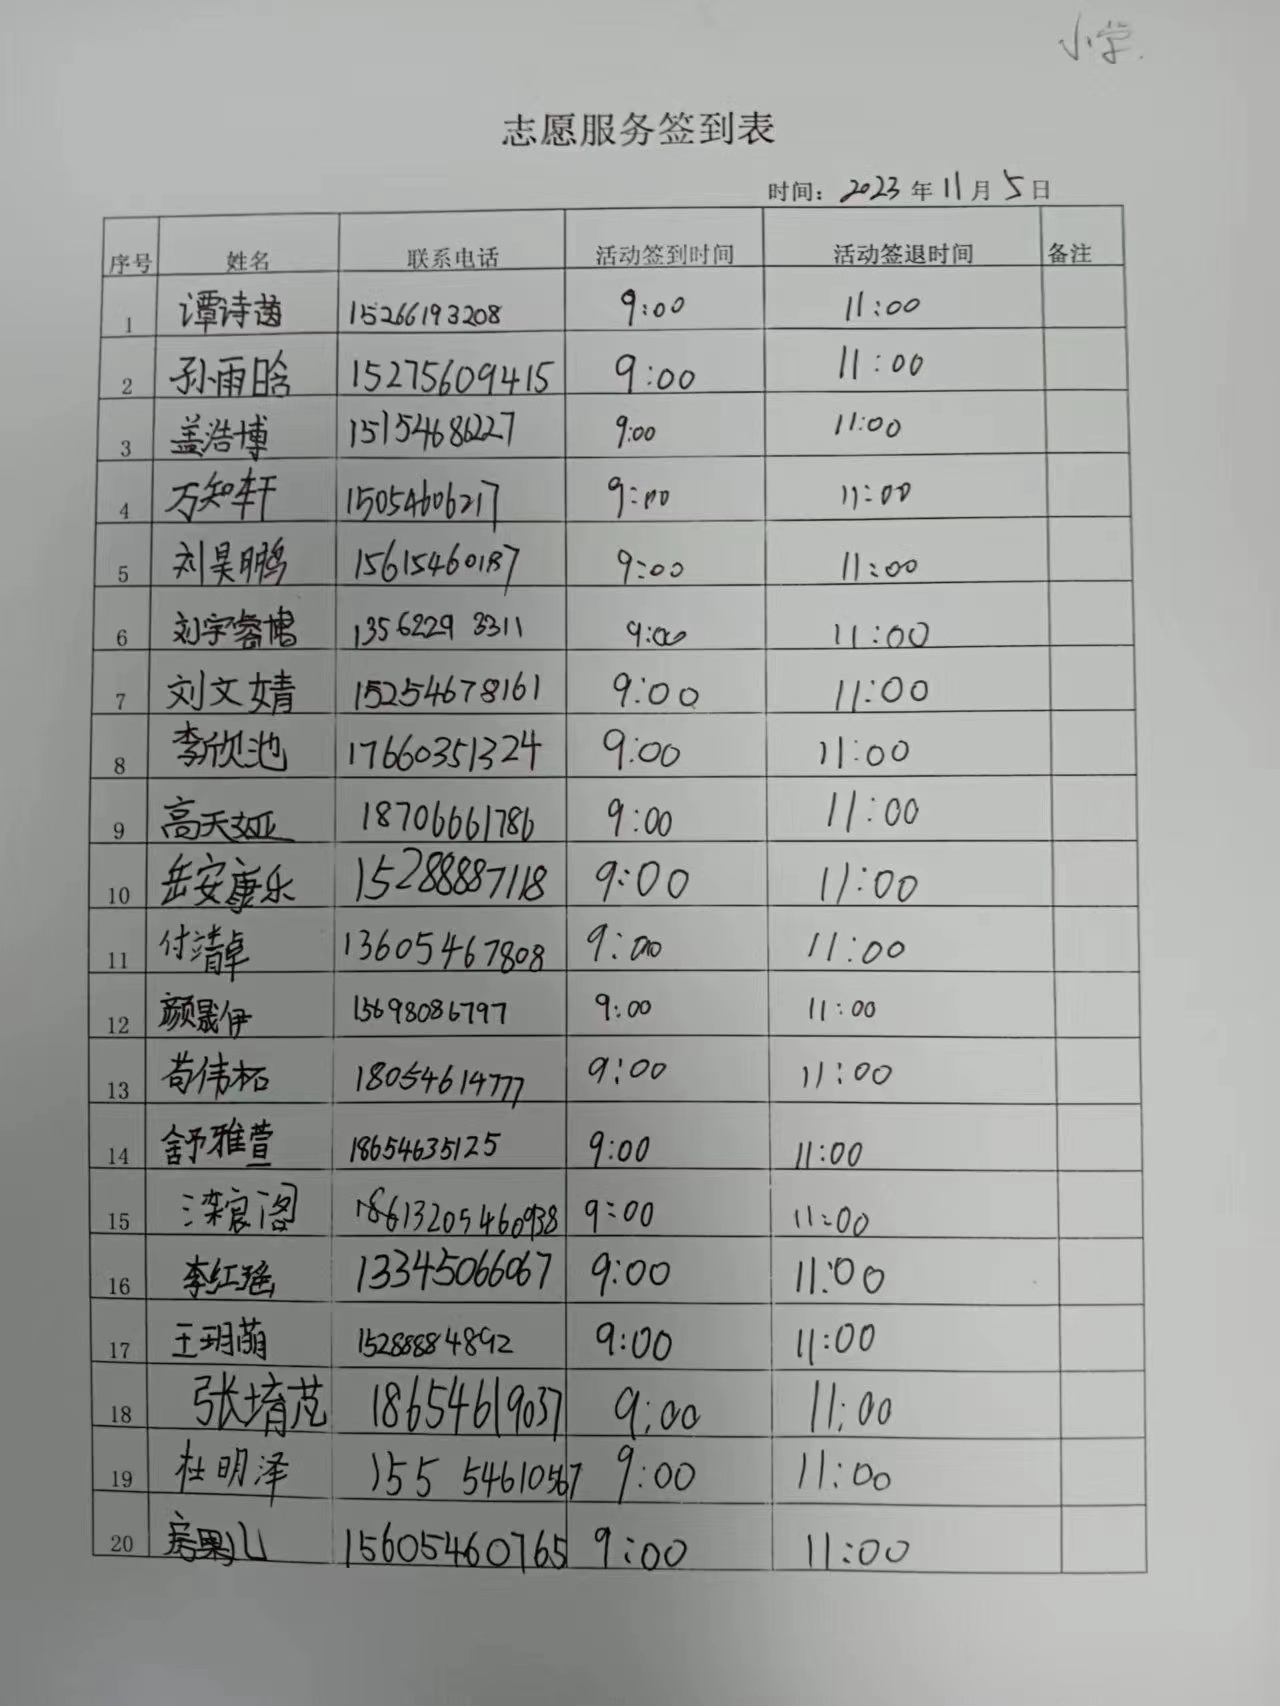 小学.
志愿服务签到表
时间: 2023 年 11 月 5 日
序号 姓名 联系电话 活动签到时间 活动签退时间 备注
1 谭诗茵 15266193208 9:00 11:00
2 孙雨晗 15275609415 9:00 11:00
3 盖浩博 15154686227 9:00 11:00
4 万知轩 15054606217 9:00 11:00
5 刘昊鹏 15615460187 9:00 11:00
6 刘宇睿博 1356229 3311 9:00 11:00
7 刘文婧 15254678161 9:00 11:00
8 李欣池 17660351324 9:00 11:00
9 高天娅 18706661786 9:00 11:00
10 岳安康乐 15288887118 9:00 11:00
11 付靖卓 13605467808 9:00 11:00
12 颜晟伊 15698086797 9:00 11:00
13 苟伟柘 18054614777 9:00 11:00
14 舒雅萱 18654635125 9:00 11:00
15 18613205460938 9:00 11:00
16 李红瑶 13345066067 9:00 11:00
17 王玥萌 15288884892 9:00 11:00
18 张堉芃 18654619037 9:00 11:00
19 杜明泽 155 54610567 9:00 11:00
20 房果儿 15605460765 9:00 11:00